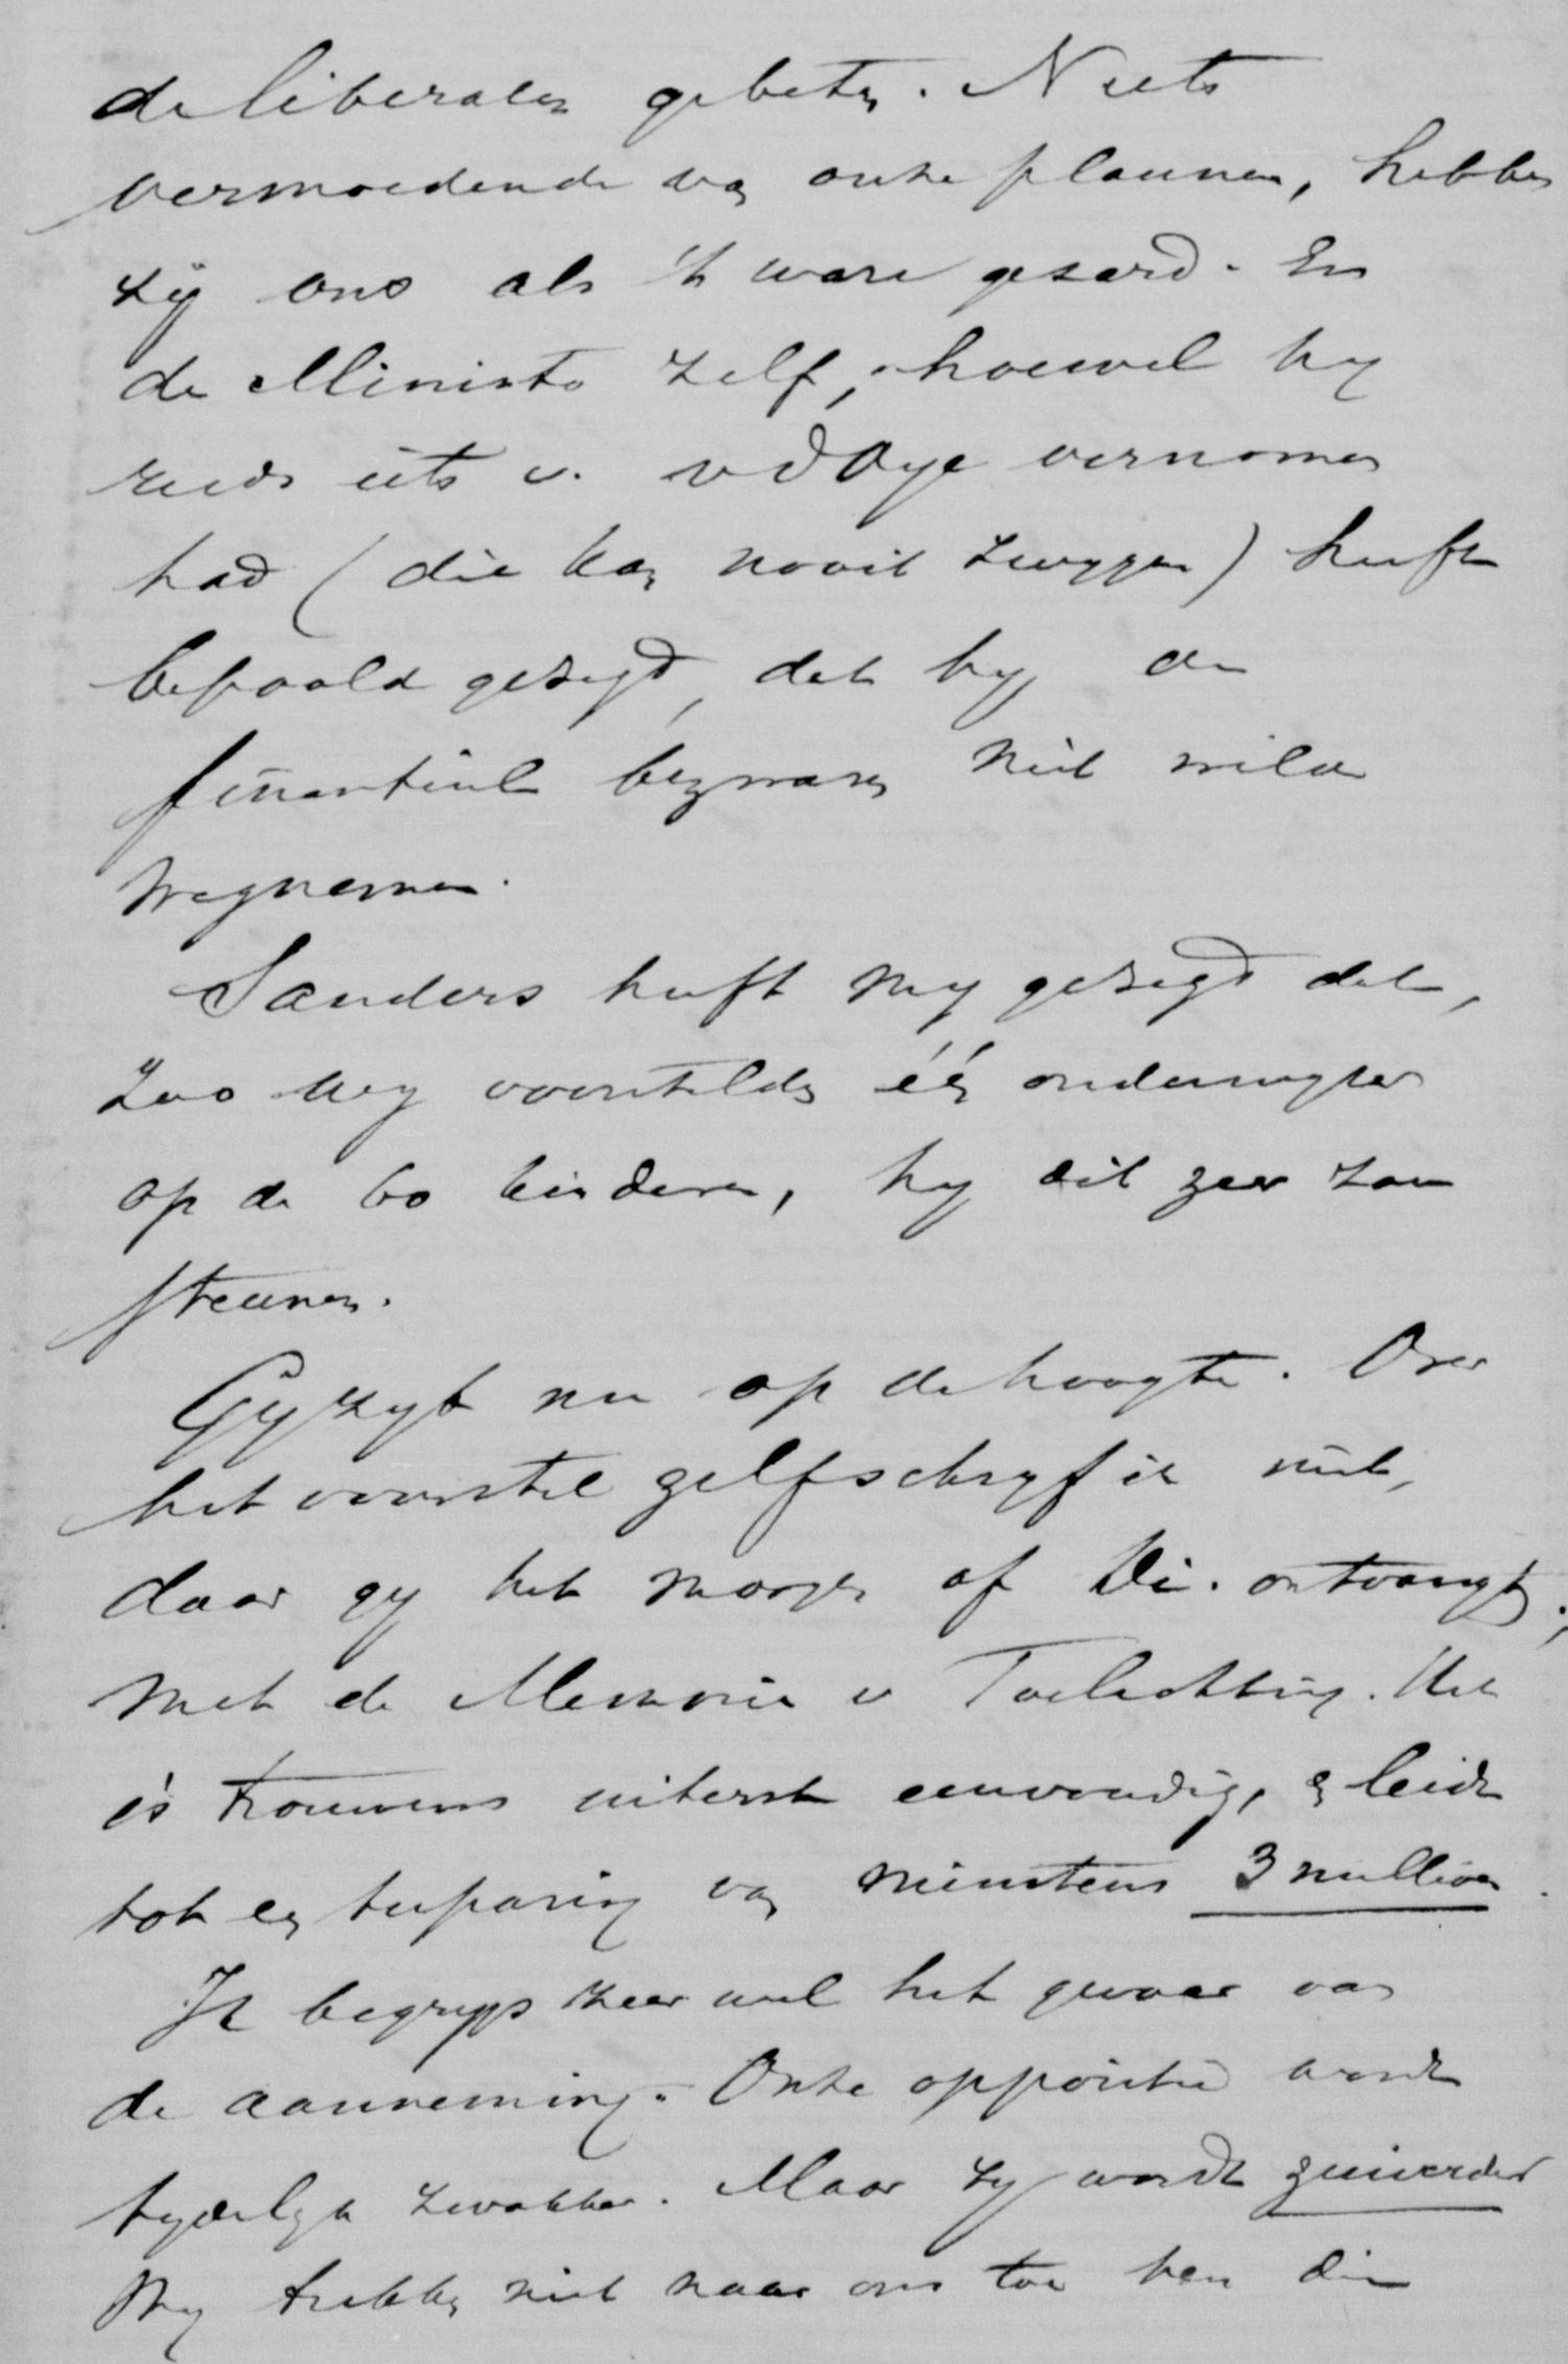 de liberalen gebeten. Niets
vermoedende van onze plannen, hebben
zij ons als 't ware gesard. En
de Minister zelf, hoewel hy
reeds iets v. vdOye vernomen
had (die kan nooit zwygen) heeft
bepaald gezegd, dat hy de
financieele bezwaren niet wilde
wegnemen.
Sanders heeft my gezegd dat,
zoo wy voorstelden één onderwyzer
op de 60 kinderen, hy dit zeer zou
steunen.
Gij zyt nu op de hoogte. Over
het voorstel zelf schryf ik niet,
daar gy het morgen of Di. ontvangt;
met de Memorie v Toelichting. Het
is trouwens uiterst eenvoudig, en leidt
tot een besparing van minstens 3 millioen.
Ik begryp zeer wel het gevaar van
de aanneming. Onze oppositie wordt
tydelyk zwakker. Maar zy wordt zuiverder
Wy trekken niet naar ons toe hen die